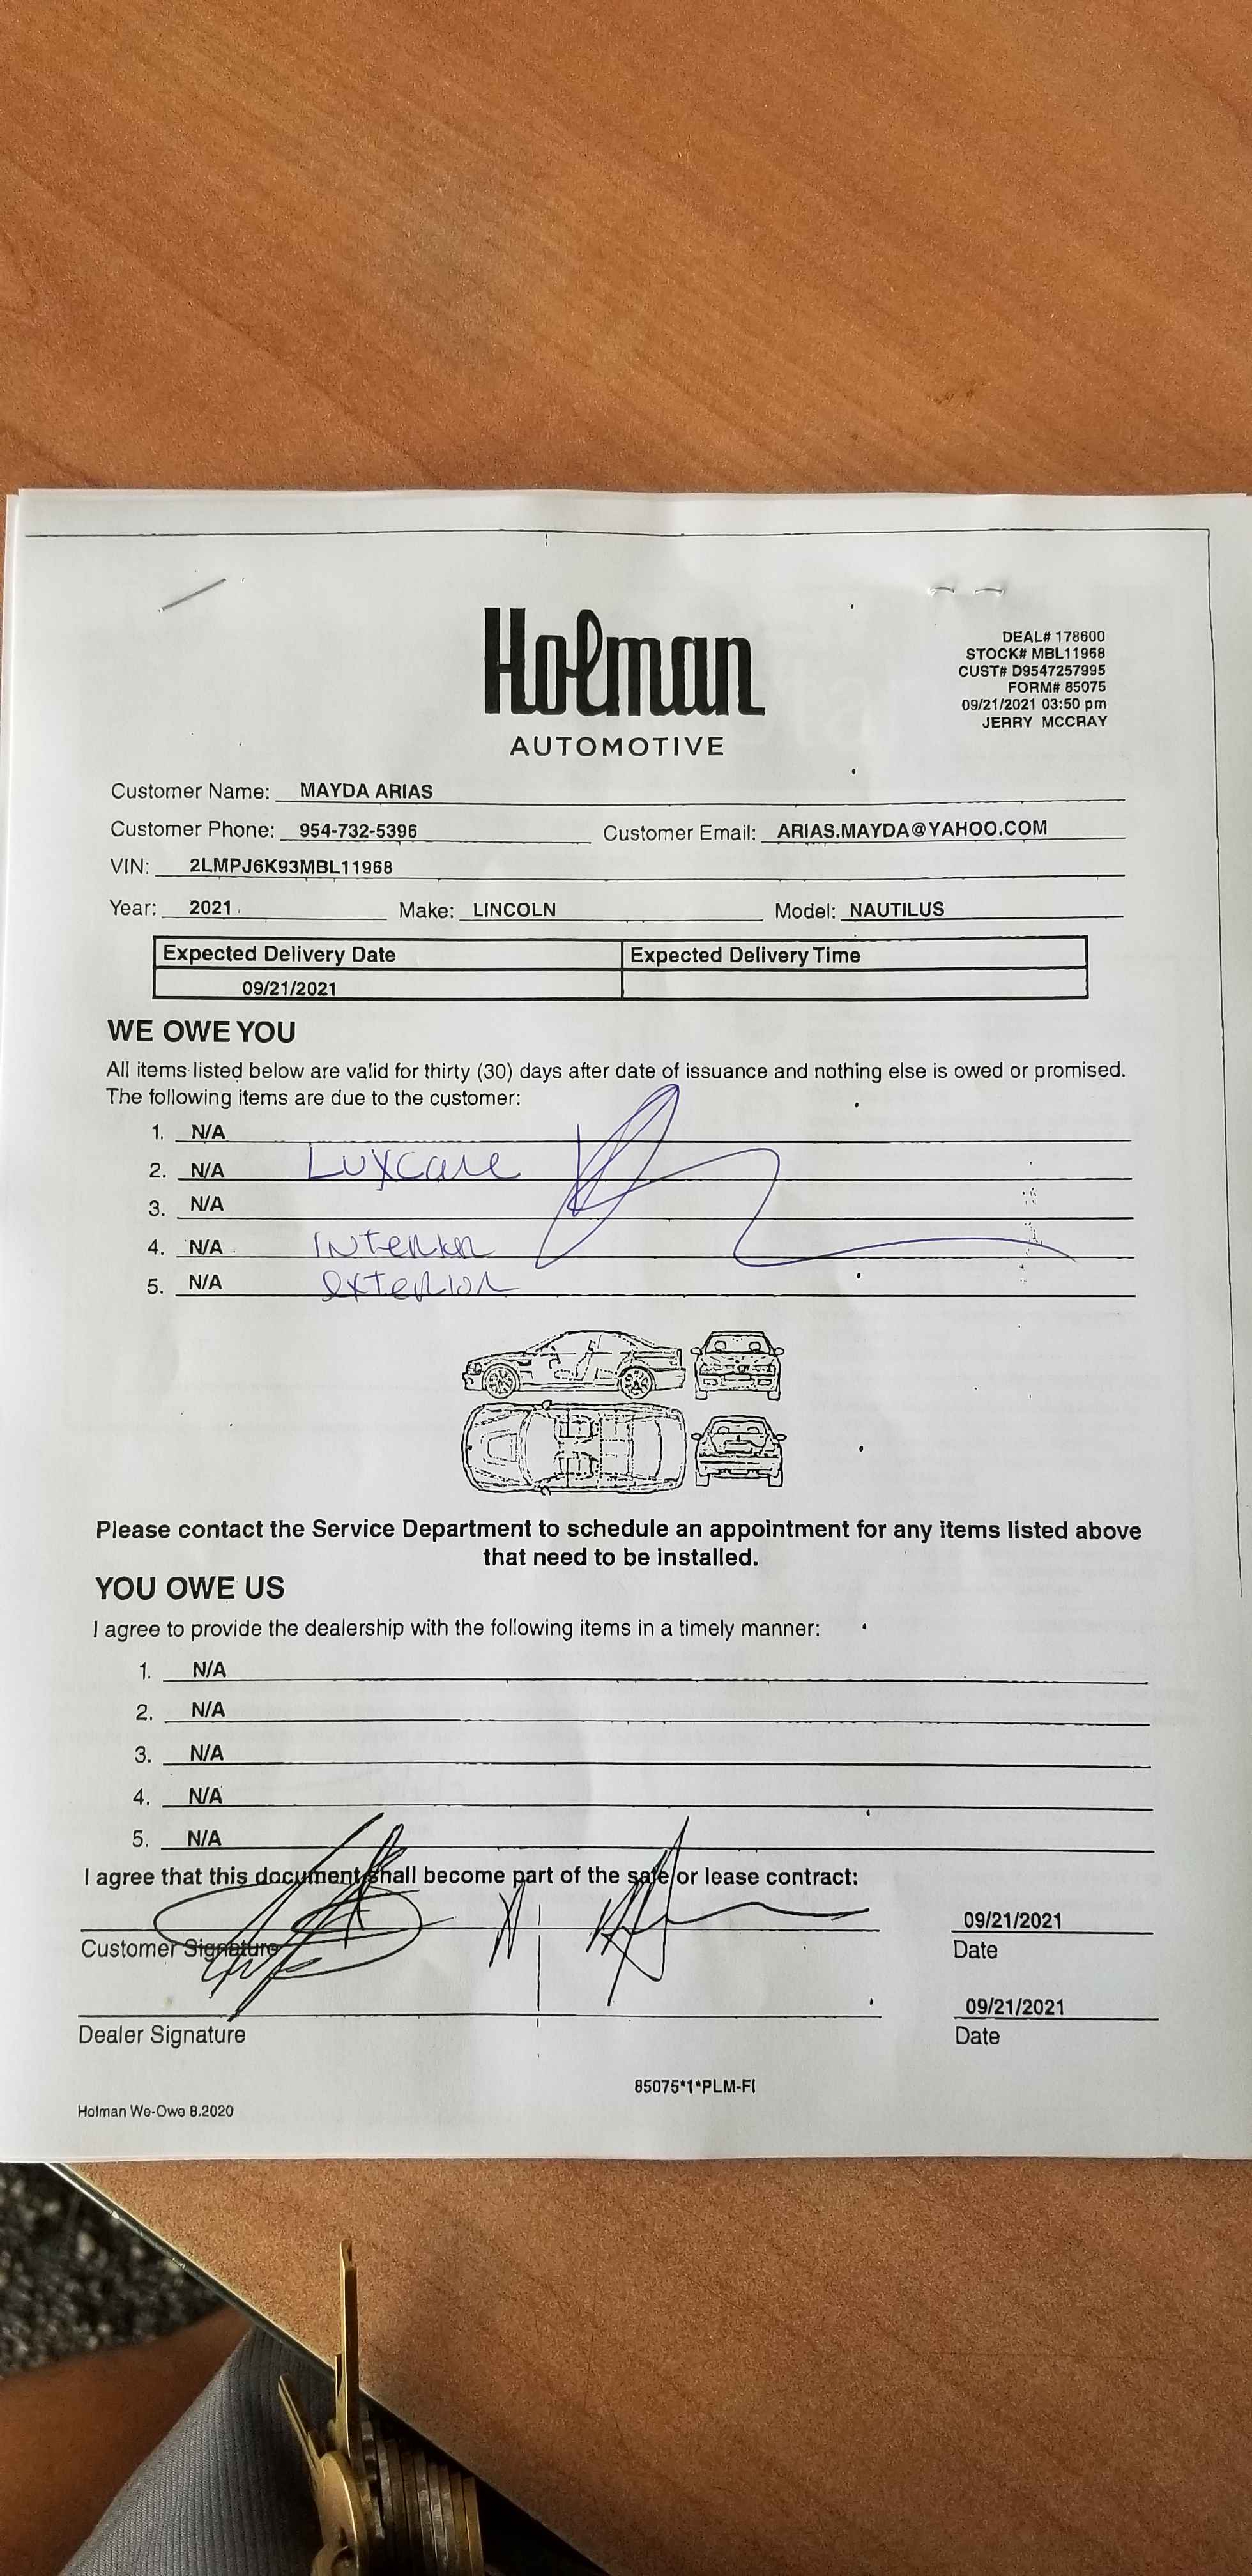 Holman
AUTOMOTIVE
DEAL# 178600
STOCK# MBL11968
CUST# D9547257995
FORM# 85075
09/21/2021 03:50 pm
JERRY MCCRAY
Customer Name: MAYDA ARIAS
Customer Phone: 954-732-5396 Customer Email: ARIAS.MAYDA@YAHOO.COM
VIN: 2LMPJ6K93MBL11968
Year: 2021 Make: LINCOLN Model: NAUTILUS
Expected Delivery Date Expected Delivery Time
09/21/2021
WE OWE YOU
All items listed below are valid for thirty (30) days after date of issuance and nothing else is owed or promised.
The following items are due to the customer:
1. N/A
2. N/A Luxcare
3. N/A
4. N/A Interior
5. N/A exterior
Please contact the Service Department to schedule an appointment for any items listed above
that need to be installed.
YOU OWE US
I agree to provide the dealership with the following items in a timely manner:
1. N/A
2. N/A
3. N/A
4. N/A
5. N/A
I agree that this document shall become part of the sale or lease contract:
09/21/2021
Customer Signature Date
09/21/2021
Dealer Signature Date
85075*1*PLM-FI
Holman We-Owe 8.2020